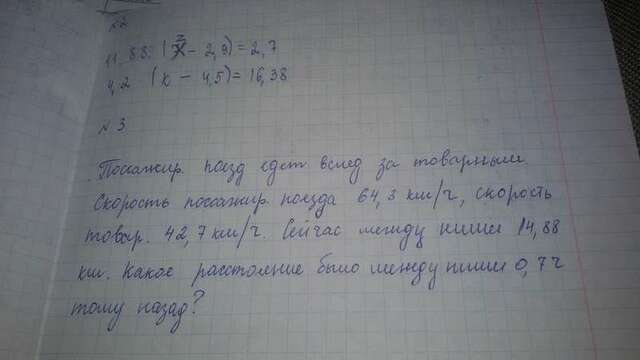 №2
11,88:(x - 2,9) = 2,7
4,2 (к - 4,5) = 16,38
№ 3
Пассажир. поезд едет вслед за товарным
Скорость пассажир. поезда 64,3 км/ч, скорость
товар. 42,7 км/ч. Сейчас между ними 14,88
км. Какое расстояние было между ними 0,7 ч
тому назад?